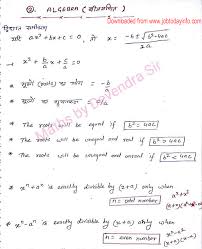 ②. ALGEBRA (बीजगणित)
Downloaded from www.jobtodayinfo.com
द्विघात समीकरण
यदि ax²+bx+c=0, तो x = -b±√b²-4ac / 2a
→ x² + b/a x + c/a = 0
• मूलों का योग = -b/a
• मूलों का गुणनफल = c/a
• The roots will be equal if b² = 4ac
• The roots will be unequal and real if b² > 4ac
• The roots will be unequal and unreal if b² < 4ac
• xⁿ+aⁿ is exactly divisible by (x+a) only when
n = odd number
• xⁿ-aⁿ is exactly divisible by (x+a) only when
n = even number
Maths by Devendra Sir